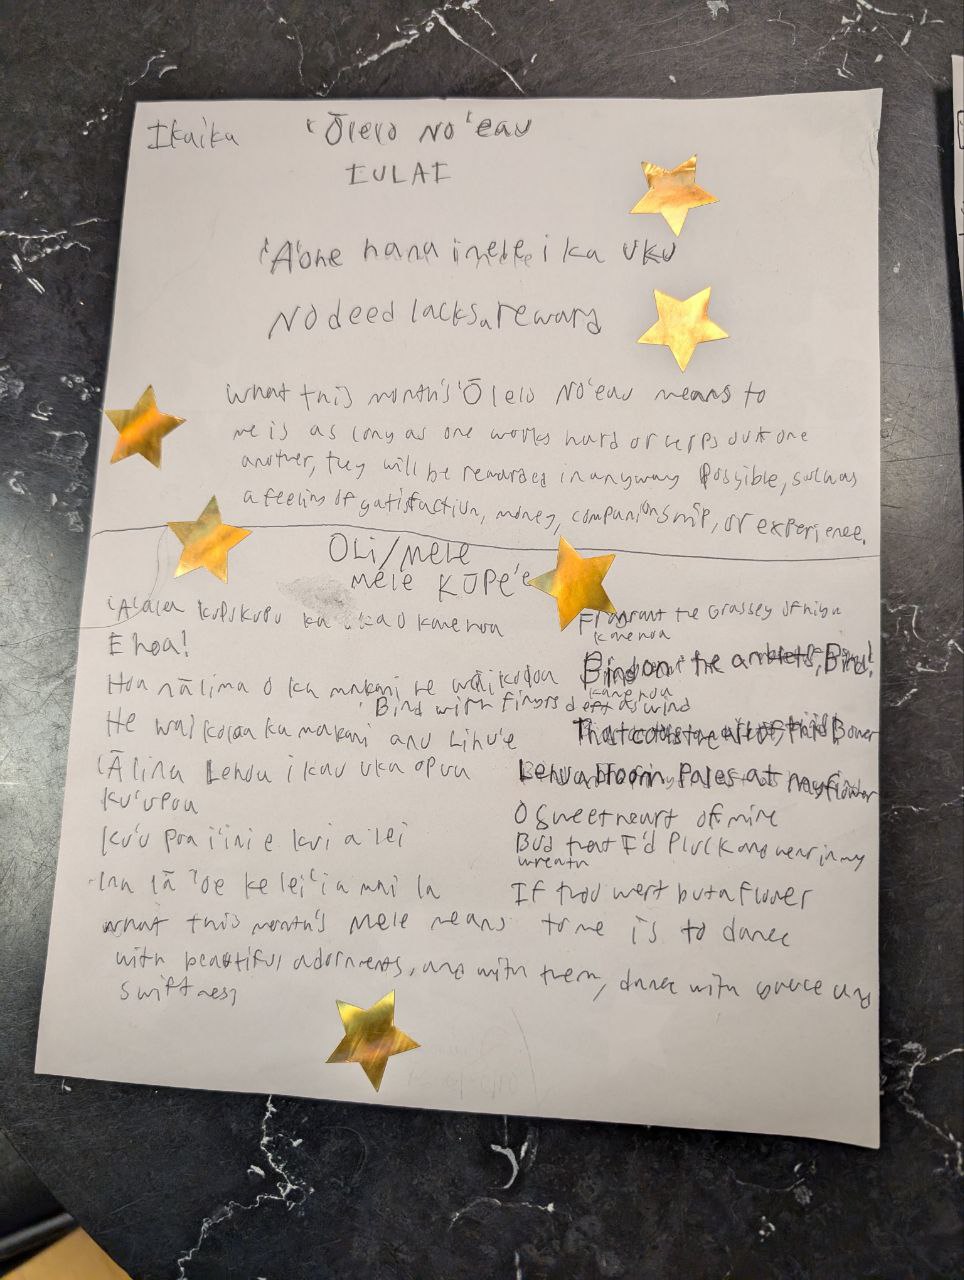 Ikaika
ʻŌlelo Noʻeau
IULAI
ʻAʻohe hana i nele i ka uku
No deed lacks a reward
What this month's ʻŌlelo Noʻeau means to
me is as long as one works hard or helps out one
another, they will be rewarded in anyway possible, such as
a feeling of satisfaction, money, companionship, or experience.
Oli/Mele
Mele Kūpeʻe
ʻAʻala kupukupu ka uka o kanehoa
Fragrant the Grassey of high
kanehoa
E hoa!
Bind on the anklets, Bind!
Hoa nā lima o ka makani he waikoloa
kanehoa
Bind with fingers deft as wind
He waikoloa ka makani anu Lihuʻe
That cools the air of this Bower
ʻĀlina Lehua i kau uka opua
Lehua bloom pales at my flower
Kuʻu pua
O sweetheart of mine
Kuʻu pua iʻini e kui a lei
Bud that I'd Pluck and wear in my
wreath
Ina iā ʻoe ke lei ʻia mai la
If thou wert but a flower
what this month's Mele means to me is to dance
with beautiful adornments, and with them, dance with grace and
swiftness